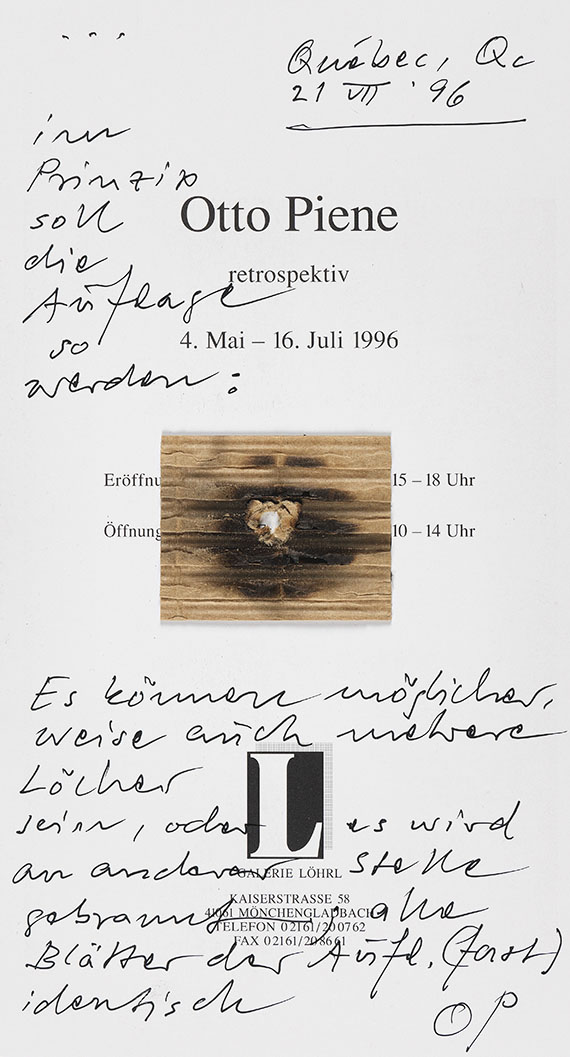 Québec, Qc
21 VII '96
im
Prinzip
soll
die
Auflage
so
werden:
Otto Piene
retrospektiv
4. Mai – 16. Juli 1996
Eröffnu 15 – 18 Uhr
Öffnung 10 – 14 Uhr
Es können möglicher,
weise auch mehrere
Löcher
sein, oder es wird
an anderer Stelle
gebrannt; alle
Blätter der Aufl. (fast)
identisch
OP
L
GALERIE LÖHRL
KAISERSTRASSE 58
41061 MÖNCHENGLADBACH
TELEFON 02161/200762
FAX 02161/208661